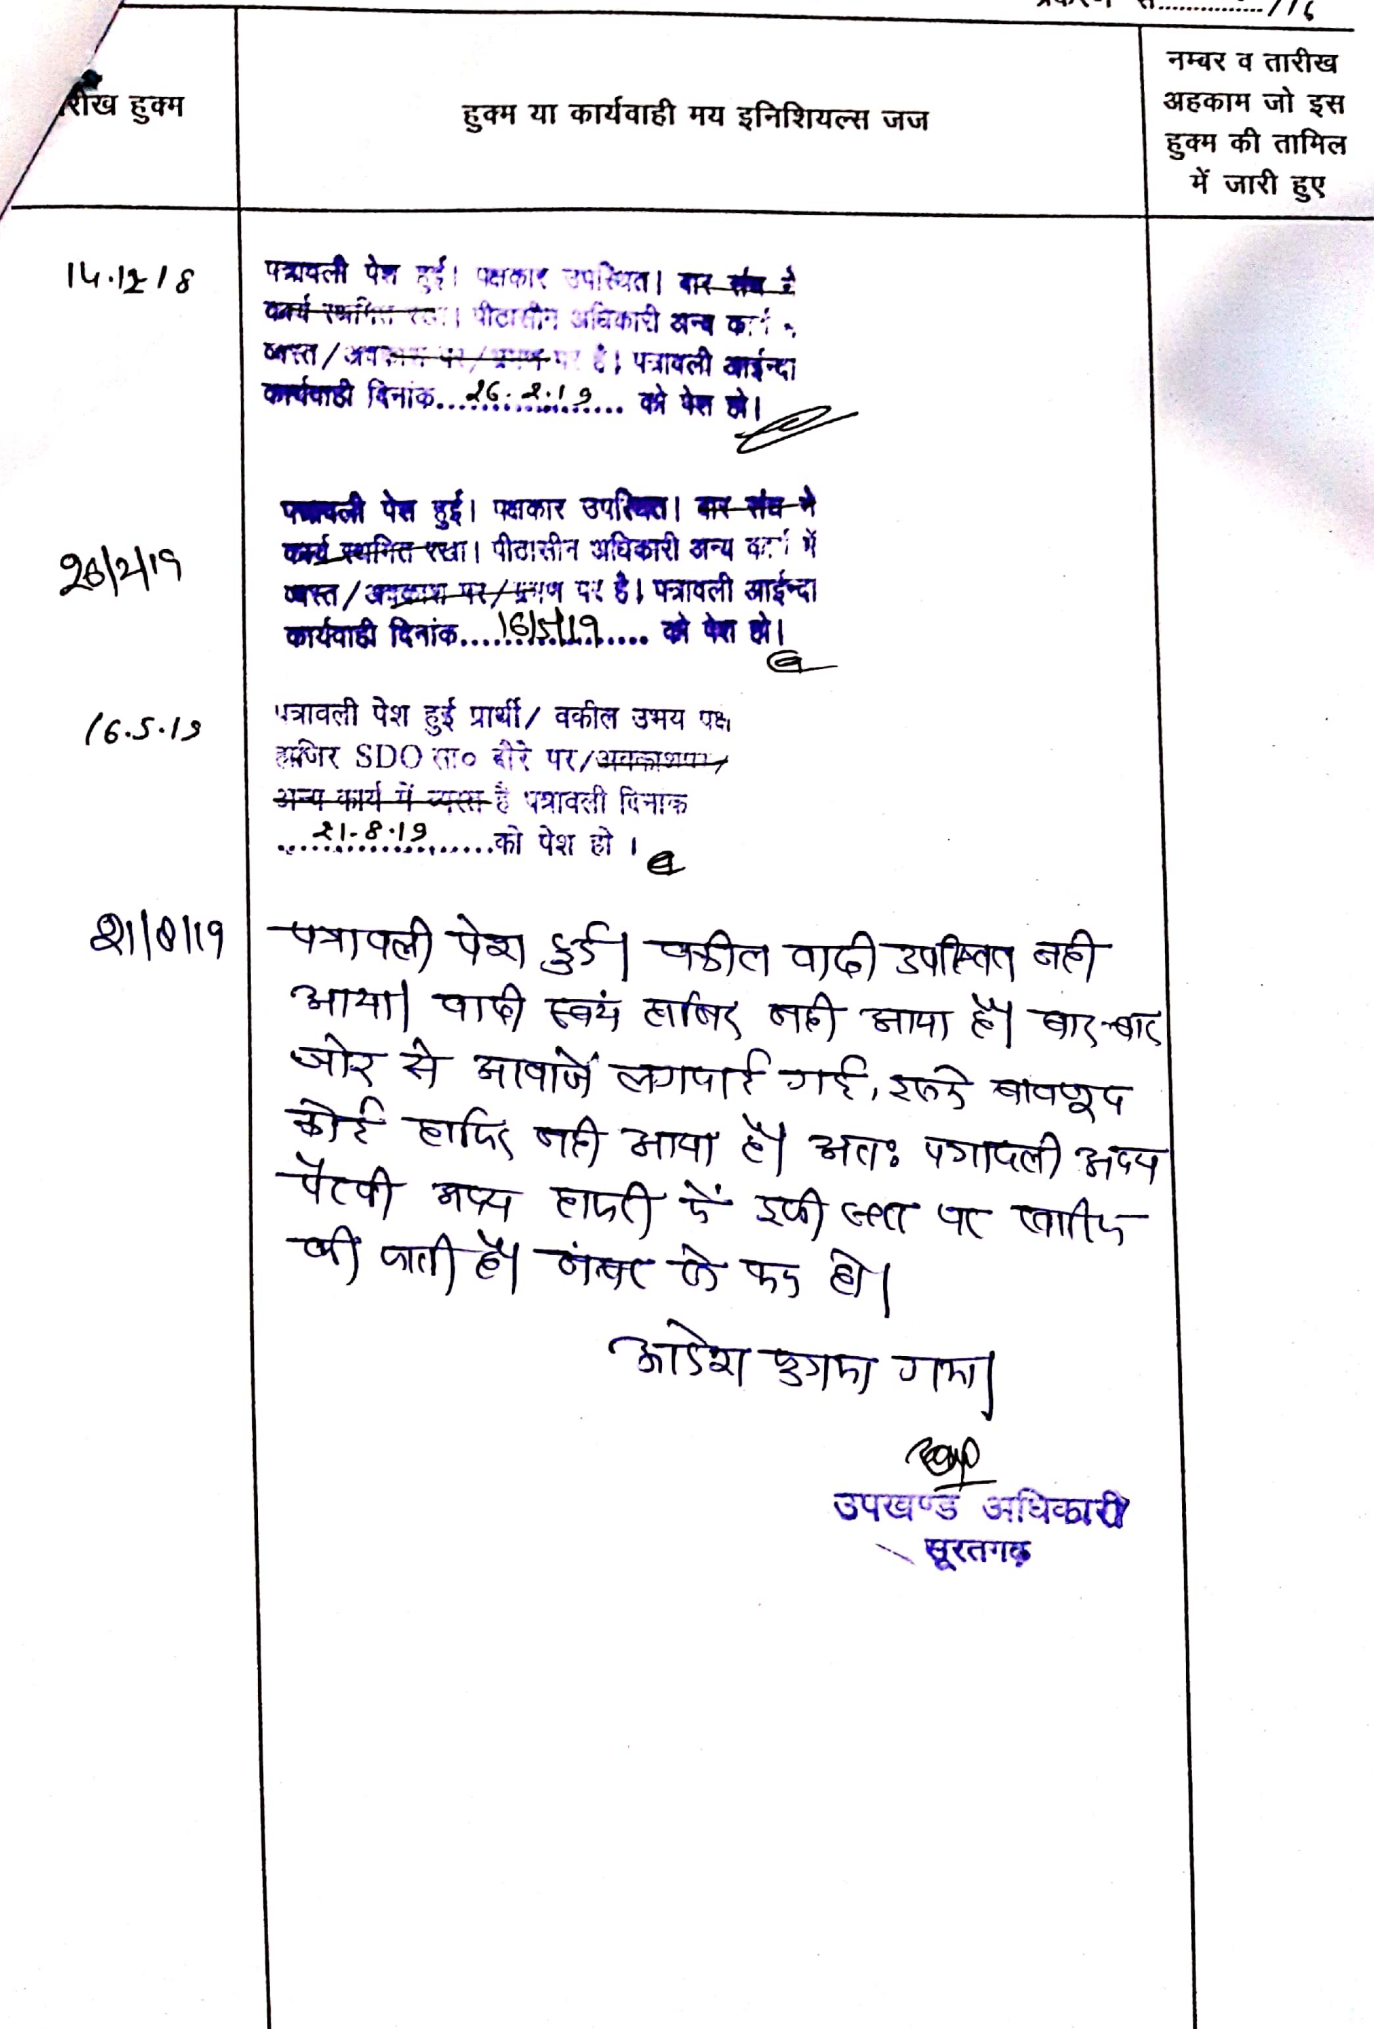 प्रकरण सं............../16
रीख हुक्म
हुक्म या कार्यवाही मय इनिशियल्स जज
नम्बर व तारीख
अहकाम जो इस
हुक्म की तामिल
में जारी हुए
14.12.18
पत्रावली पेश हुई। पक्षकार उपस्थित। बार संघ ने
कार्य स्थगित रखा। पीठासीन अधिकारी अन्य कार्य
व्यस्त/अवकाश पर/भ्रमण पर है। पत्रावली आईन्दा
कार्यवाही दिनांक....26.2.19.... को पेश हो।
26/2/19
पत्रावली पेश हुई। पक्षकार उपस्थित। बार संघ ने
कार्य स्थगित रखा। पीठासीन अधिकारी अन्य कार्य में
व्यस्त/अवकाश पर/भ्रमण पर है। पत्रावली आईन्दा
कार्यवाही दिनांक....16/5/19.... को पेश हो।
16.5.19
पत्रावली पेश हुई प्रार्थी/ वकील उभय पक्ष
हाजिर SDO सा० दौरे पर/अवकाशपर/
अन्य कार्य में व्यस्त है पत्रावली दिनांक
....21.8.19....को पेश हो ।
21/8/19
पत्रावली पेश हुई। वकील वादी उपस्थित नही
आया। वादी स्वयं हाजिर नही आया है। बार-बार
जोर से आवाजें लगवाई गई, इसके बावजूद
कोई हाजिर नही आया है। अतः पत्रावली अदम
पैरवी अदम हाजरी में इसी स्तर पर खारिज
की जाती है। नंबर से कम हो।
आदेश सुनाया गया।
उपखण्ड अधिकारी
सूरतगढ़